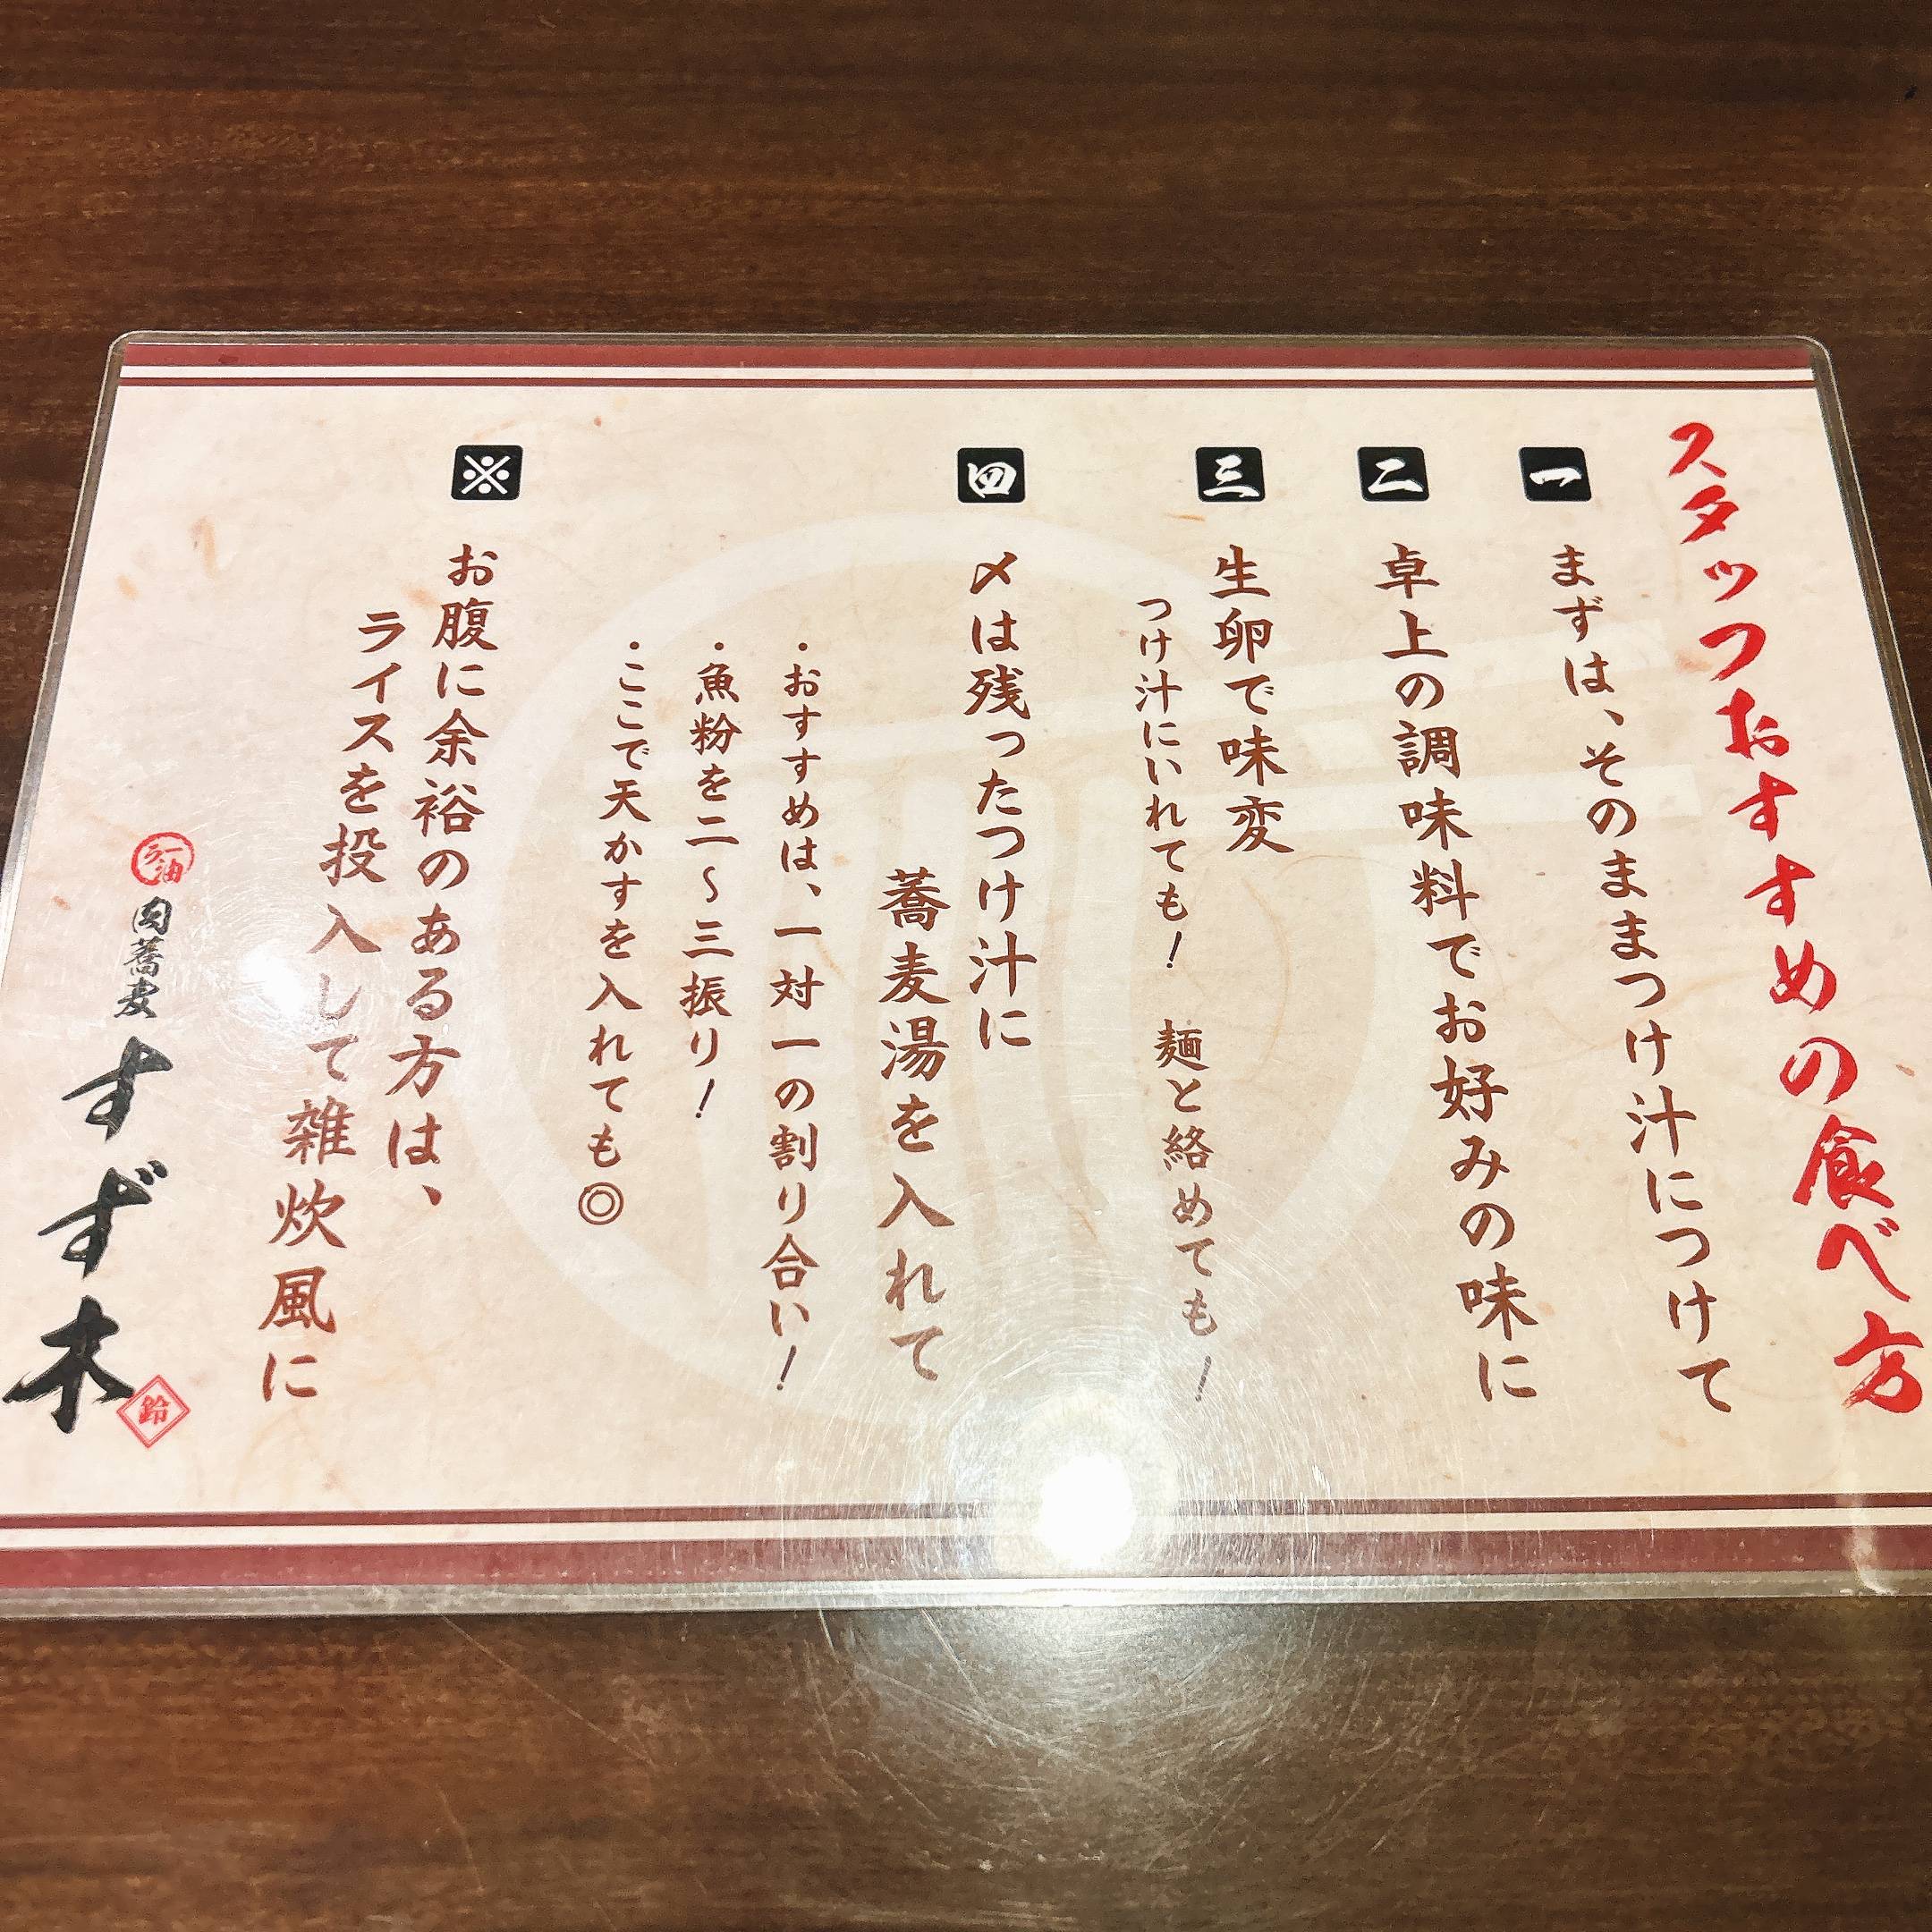 スタッフおすすめの食べ方
一 まずは、そのままつけ汁につけて
二 卓上の調味料でお好みの味に
三 生卵で味変
つけ汁にいれても! 麺と絡めても!
四 〆は残ったつけ汁に
蕎麦湯を入れて
・おすすめは、一対一の割り合い!
・魚粉を二～三振り!
・ここで天かすを入れても◎
※ お腹に余裕のある方は、
ライスを投入して雑炊風に
ラー油
肉蕎麦
すず木
鈴